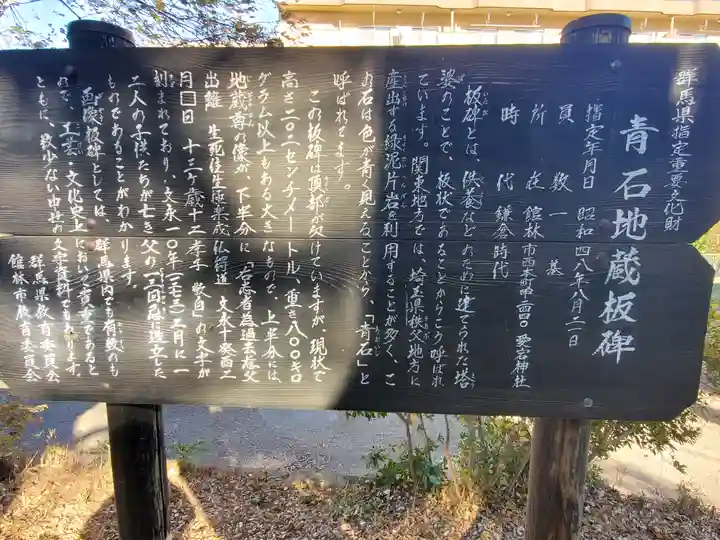 群馬県指定重要文化財
青石地蔵板碑
指定年月日 昭和四八年八月二一日
員数 一基
所在 館林市西本町甲二四〇 愛宕神社
時代 鎌倉時代
板碑とは、供養などのために建てられた塔
婆のことで、板状であることからこう呼ばれ
ています。関東地方では、埼玉県秩父地方に
産出する緑泥片岩を利用することが多く、こ
の石は色が青く見えることから、「青石」と
呼ばれてます。
この板碑は頂部が欠けていますが、現状で
高さ二〇二センチメートル、重さ八〇〇キロ
グラム以上もある大きなもので、上半分には、
地蔵尊の像が、下半分に「右志者為過去慈父
出離 生死往生極楽成仏得道 文永十癸酉二
月□日 十三ケ歳十二 孝子 敬白」の文字が
刻まれており、文永一〇年(一二七三)二月に一
二人の子供たちが亡き父の一三回忌に造立した
ものであることがわかります。
画像板碑としては、群馬県内でも有数のも
ので、工芸、文化史上において貴重であると
ともに、数少ない中世の文字資料でもあります。
群馬県教育委員会
館林市教育委員会